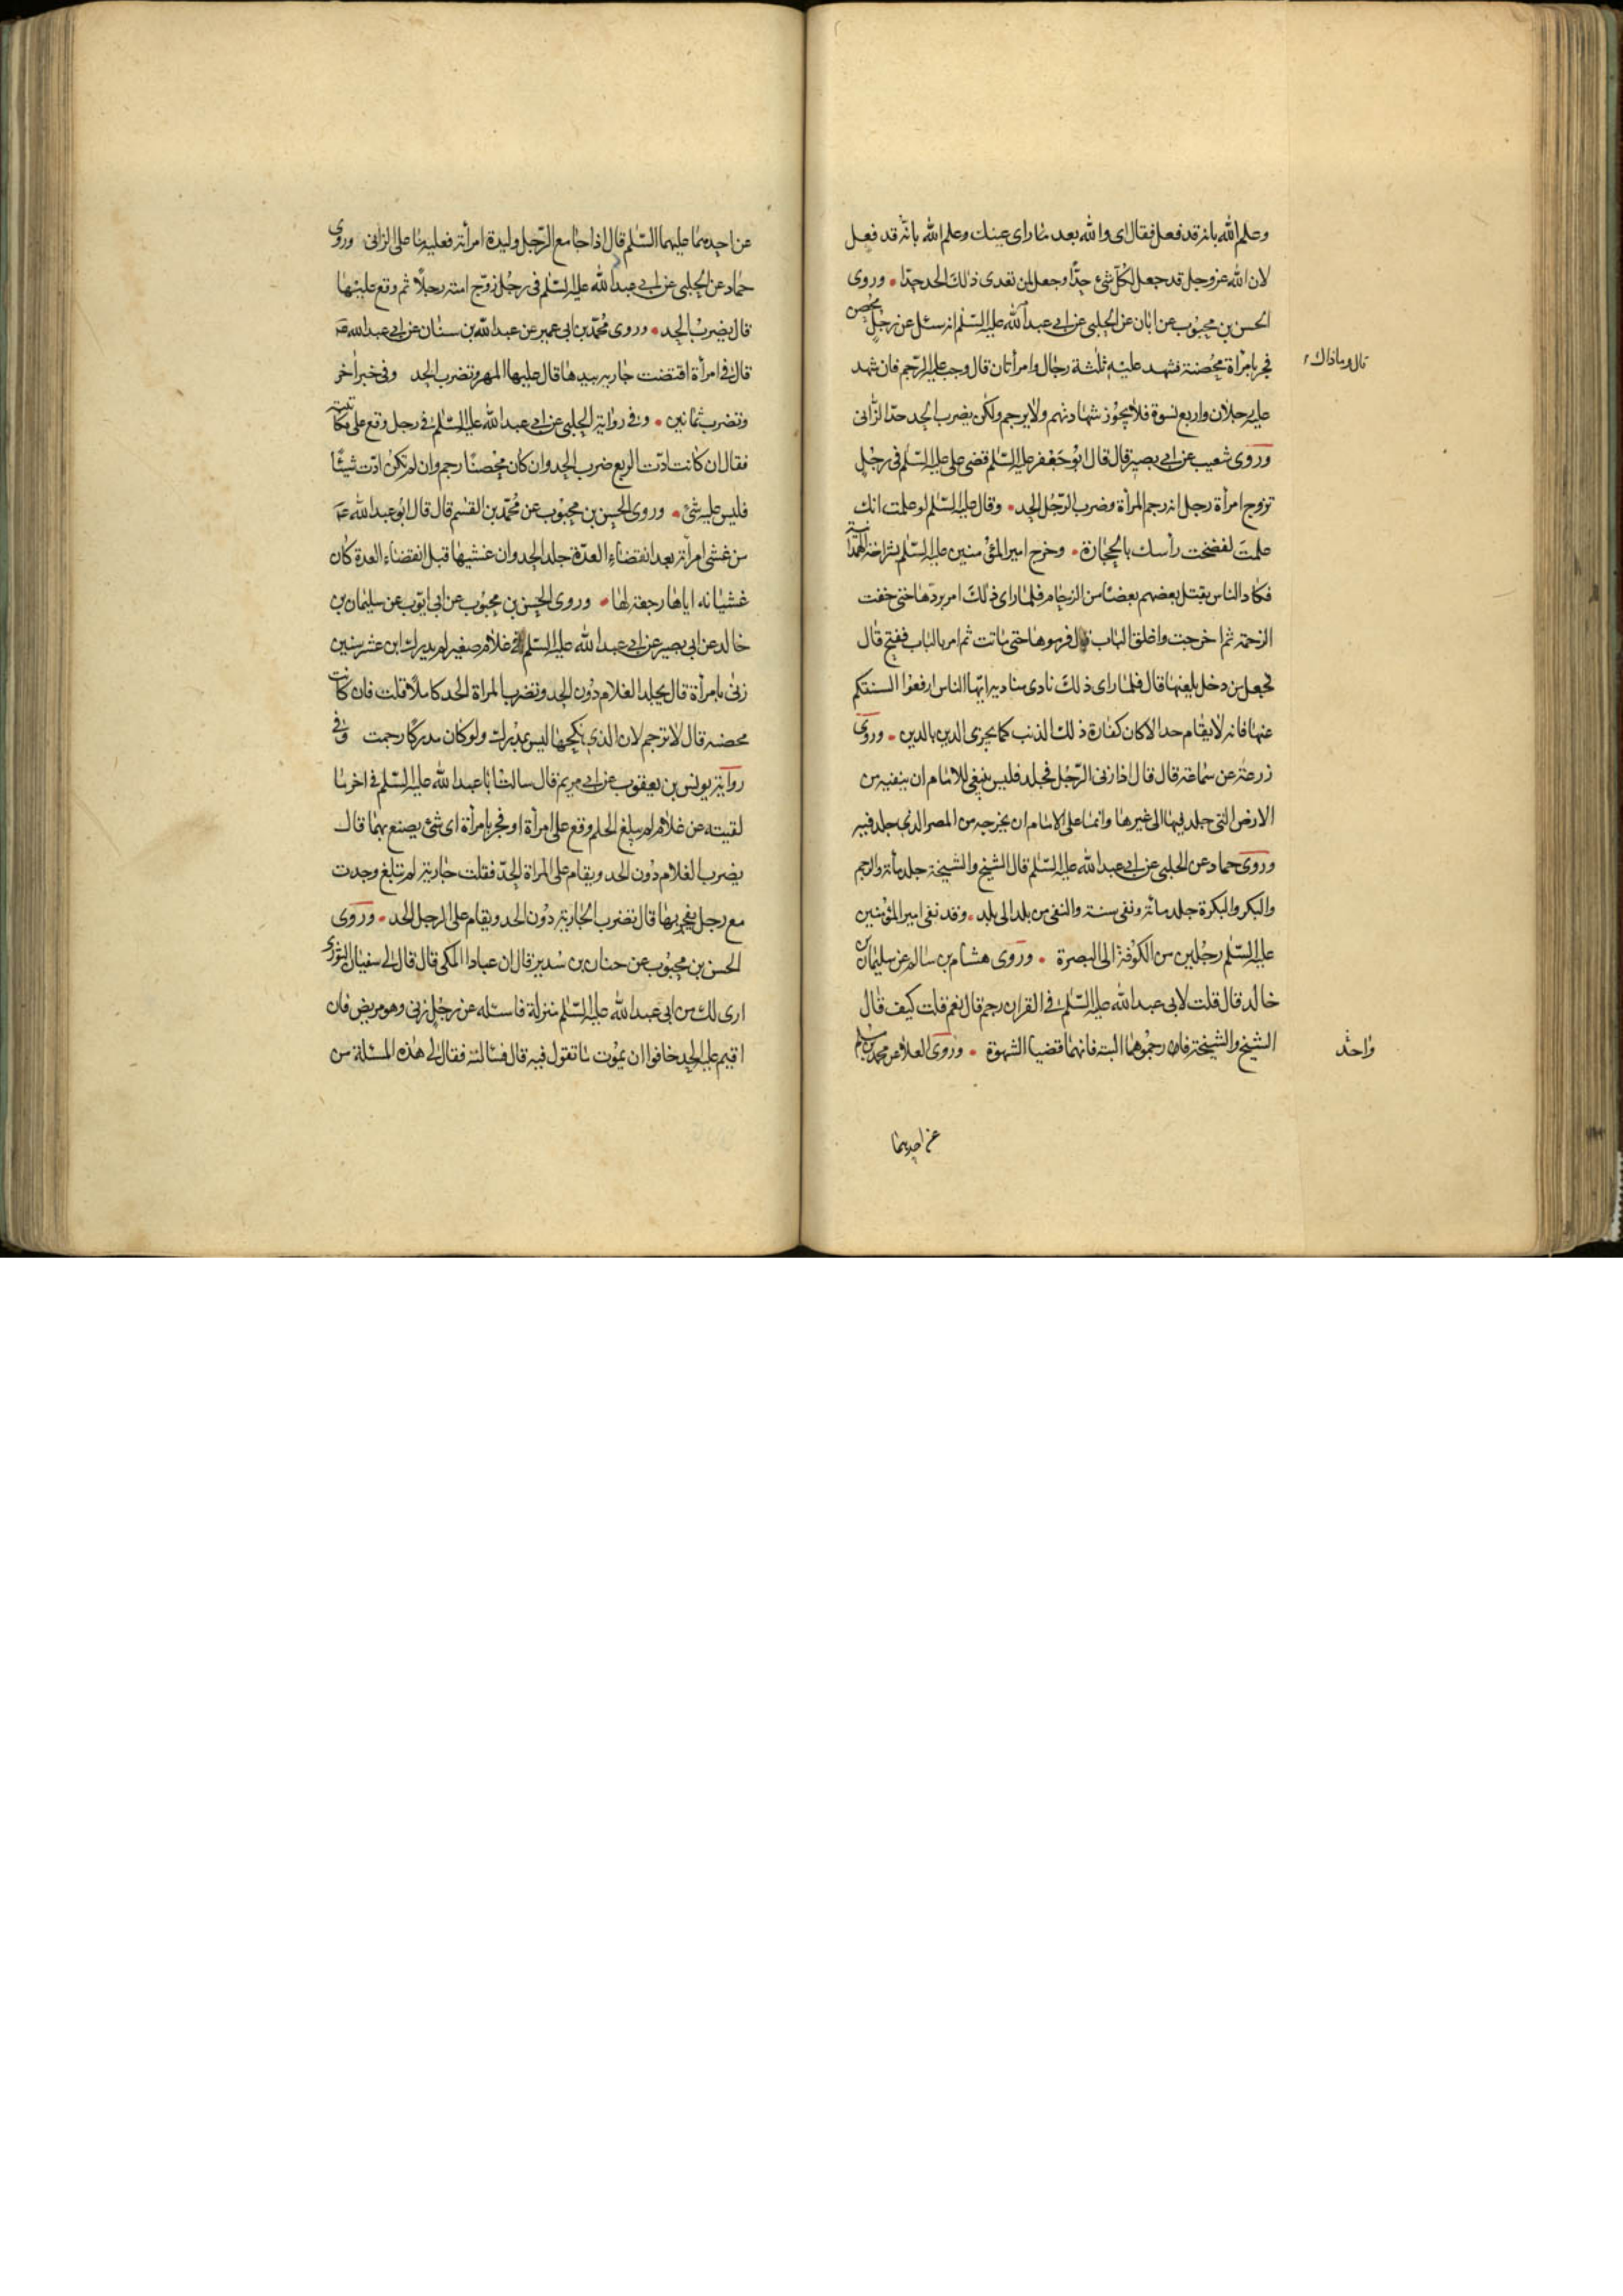 وعلم الله بانه قد فعل فقال اى والله بعد ما راى عينك وعلم الله بانه قد فعل
لان الله عز وجل قد جعل لكل شئ حدا وجعل لمن تعدى ذلك الحد حدا وروى
الحسن بن محبوب عن ابان عن الحلبى عن ابى عبد الله عليه السلم انه سئل عن رجل محصن
فجر بامرأة محصنة فشهد عليه ثلثة رجال وامرأتان قال وجب عليه الرجم فان شهد
عليه رجلان واربع نسوة فلا يجوز شهادتهم ولا يرجم ولكن يضرب الحد حد الزانى
وروى شعيب عن ابى بصير قال قال ابو جعفر عليه السلم قضى على عليه السلم فى رجل
تزوج امرأة رجل انه رجم المرأة وضرب الرجل الحد وقال عليه السلم لو علمت انك
علمت لفضخت رأسك بالحجارة وخرج امير المؤمنين عليه السلم بشراحة الهمدانية
فكاد الناس يقتل بعضهم بعضا من الزحام فلما راى ذلك امر بردها حتى خفت
الزحمة ثم اخرجت واغلق الباب قال فرموها حتى ماتت ثم امر بالباب ففتح قال
فجعل من دخل يلعنها قال فلما راى ذلك نادى مناديه ايها الناس ارفعوا السنتكم
عنها فانه لا يقام حد الا كان كفارة ذلك الذنب كما يجزى الدين بالدين وروى
زرعة عن سماعة قال قال اذا زنى الرجل فجلد فليس ينبغى للامام ان ينفيه من
الارض التى جلد فيها الى غيرها وانما على الامام ان يخرجه من المصر الذى جلد فيه
وروى حماد عن الحلبى عن ابى عبد الله عليه السلم قال الشيخ والشيخة جلد مائة والرجم
والبكر والبكرة جلد مائة ونفى سنة والنفى من بلد الى بلد وقد نفى امير المؤمنين
عليه السلم رجلين من الكوفة الى البصرة وروى هشام بن سالم عن سليمان بن
خالد قال قلت لابى عبد الله عليه السلم فى القران رجم قال نعم قلت كيف قال
الشيخ والشيخة فارجموهما البتة فانهما قضيا الشهوة وروى العلا عن محمد بن مسلم
عن احدهما
قال وما ذاك
واحد
عن احدهما عليهما السلم قال اذا جامع الرجل وليدة امرأته فعليه ما على الزانى وروى
حماد عن الحلبى عن ابى عبد الله عليه السلم فى رجل زوج امته رجلا ثم وقع عليها
قال يضرب الحد وروى محمد بن ابى عمير عن عبد الله بن سنان عن ابى عبد الله عه
قال فى امرأة اقتضت جاريه بيدها قال عليها المهر وتضرب الحد وفى خبر آخر
وتضرب ثمانين وفى رواية الحلبى عن ابى عبد الله عليه السلم فى رجل وقع على مكاتبته
فقال ان كانت ادت الربع ضرب الحد وان كان محصنا رجم وان لم تكن ادت شيئا
فليس عليه شئ وروى الحسن بن محبوب عن محمد بن القسم قال قال ابو عبد الله عه
من غشى امرأته بعد انقضاء العدة جلد الحد وان غشيها قبل انقضاء العدة كان
غشيانه اياها رجعة لها وروى الحسن بن محبوب عن ابى ايوب عن سليمان بن
خالد عن ابى بصير عن ابى عبد الله عليه السلم فى غلام صغير لم يدرك ابن عشر سنين
زنى بامرأة قال يجلد الغلام دون الحد وتضرب المراة الحد كاملا قلت فان كانت
محصنه قال لا ترجم لان الذى نكحها ليس بمدرك ولو كان مدركا رجمت وفى
رواية يونس بن يعقوب عن ابى مريم قال سالت ابا عبد الله عليه السلم فى اخر ما
لقيته عن غلام لم يبلغ الحلم وقع على امرأة او فجر بامرأة اى شئ يصنع بهما قال
يضرب الغلام دون الحد ويقام على المراة الحد فقلت جارية لم تبلغ وجدت
مع رجل يفجر بها قال تضرب الجارية دون الحد ويقام على الرجل الحد وروى
الحسن بن محبوب عن حنان بن سدير قال ان عبادا المكى قال قال لى سفيان الثورى
ارى لك من ابى عبد الله عليه السلم منزلة فاسئله عن رجل زنى وهو مريض فان
اقيم عليه الحد خافوا ان يموت ما تقول فيه قال فسالته فقال لى هذه المسئلة من